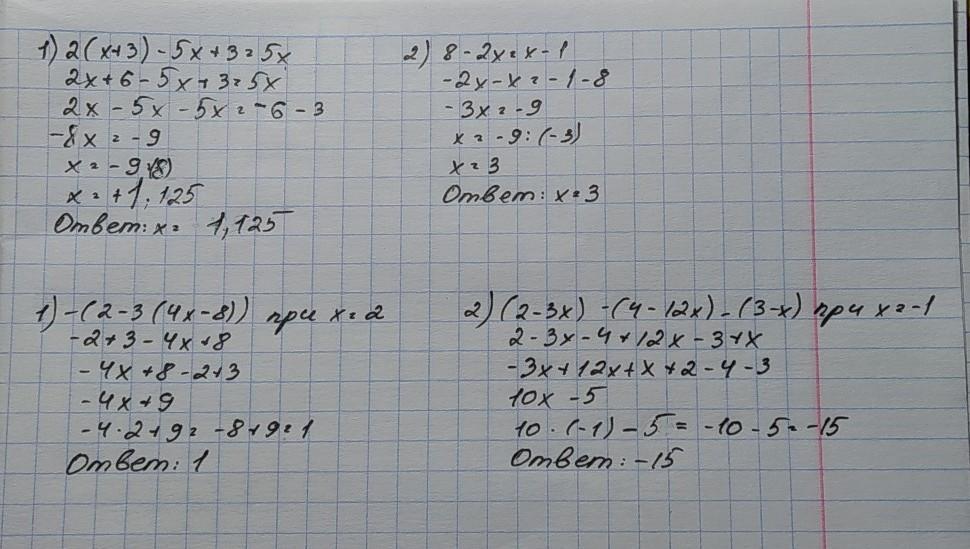 1) 2(x+3) - 5x + 3 = 5x
2x + 6 - 5x + 3 = 5x
2x - 5x - 5x = -6 - 3
-8x = -9
x = -9 (8)
x = +1,125
Ответ: x = 1,125
2) 8 - 2x = x - 1
-2x - x = -1 - 8
-3x = -9
x = -9 : (-3)
x = 3
Ответ: x = 3
1) -(2 - 3 (4x - 8)) при x = 2
-2 + 3 - 4x + 8
-4x + 8 - 2 + 3
-4x + 9
-4 · 2 + 9 = -8 + 9 = 1
Ответ: 1
2) (2 - 3x) - (4 - 12x) - (3 - x) при x = -1
2 - 3x - 4 + 12x - 3 + x
-3x + 12x + x + 2 - 4 - 3
10x - 5
10 · (-1) - 5 = -10 - 5 = -15
Ответ: -15